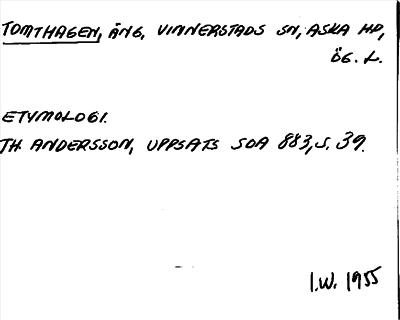 TOMTHAGEN, ÄNG, VINNERSTADS SN, ASKA HD,
ÖG. L.
ETYMOLOGI.
TH. ANDERSSON, UPPSATS SOA 883, S. 39.
I.W. 1955